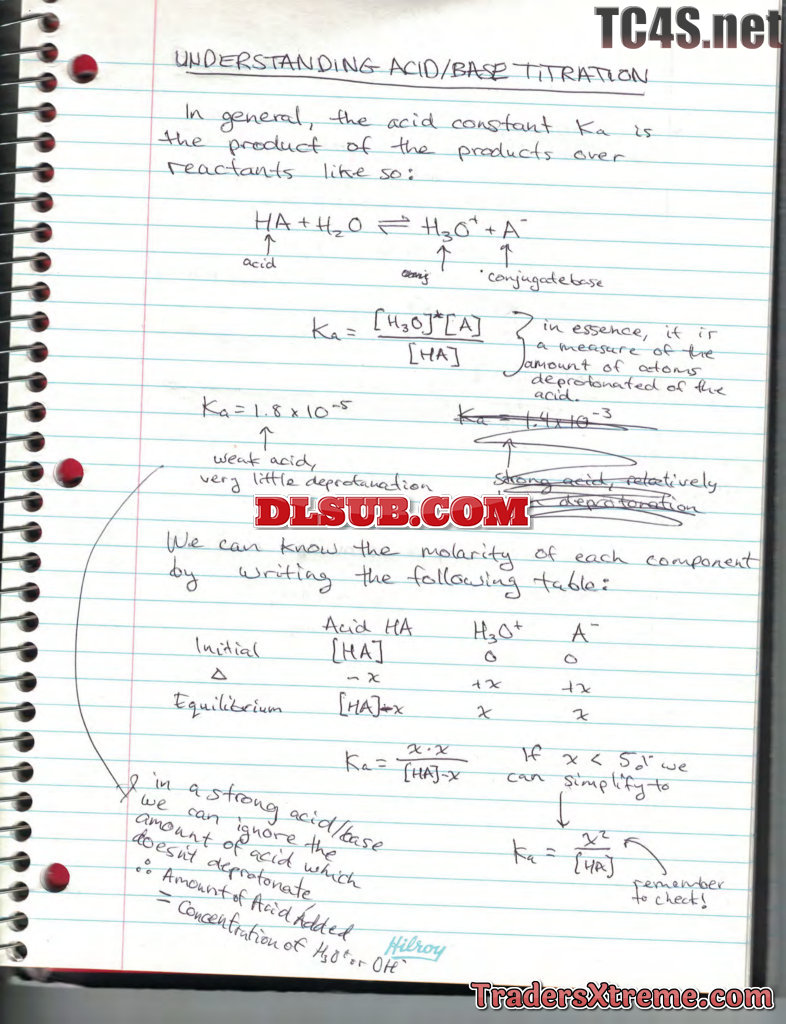 TC4S.net
UNDERSTANDING ACID/BASE TITRATION
In general, the acid constant Ka is
the product of the products over
reactants like so:
HA + H₂O ⇌ H₃O⁺ + A⁻
↑ ↑ ↑
acid conj conjugate base
Ka = [H₃O]⁺[A] / [HA]
in essence, it is
a measure of the
amount of atoms
deprotonated of the
acid.
Ka = 1.8 x 10⁻⁵
↑
weak acid,
very little deprotanation
Ka = 1.4x10⁻³
↑
strong acid, relatively
deprotonation
DLSUB.COM
We can know the molarity of each component
by writing the following table:
Acid HA H₃O⁺ A⁻
Initial [HA] 0 0
Δ -x +x +x
Equilibrium [HA]-x x x
Ka = x·x / [HA]-x
If x < 5% we
can simplify to
↓
Ka = x² / [HA]
remember
to check!
in a strong acid/base
we can ignore the
amount of acid which
doesn't deprotonate
∴ Amount of Acid Added
= Concentration of H₃O⁺ or OH⁻
Hilroy
TradersXtreme.com